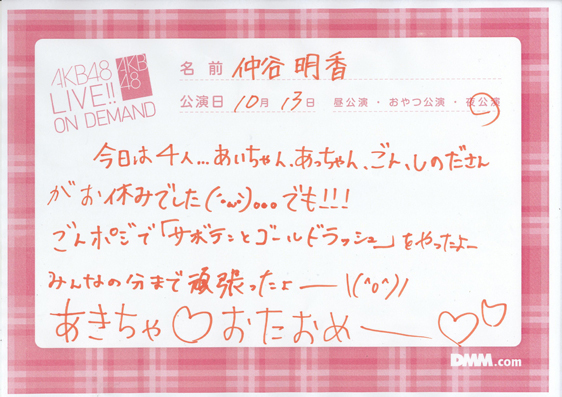 AKB48
LIVE!!
ON DEMAND
AKB
48
名前 仲谷明香
公演日 10月 13日 昼公演・おやつ公演・夜公演
今日は4人...あいちゃん、あっちゃん、ごん、しのださん
がお休みでした(´･ω･`)。。。でも!!!
ごんポジで「サボテンとゴールドラッシュ」をやったよー
みんなの分まで頑張ったよー \(^o^)/
あきちゃ♡おたおめー♡♡
DMM.com